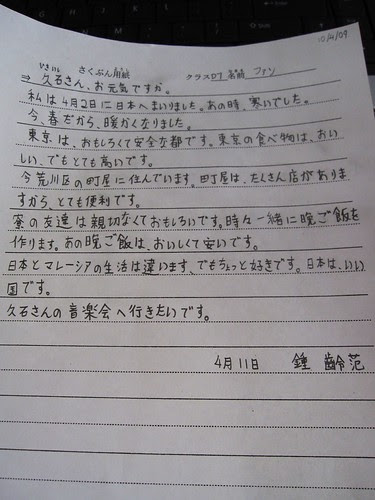 10/4/09
さくぶん用紙 クラス 名前 ファン
ひさいし
⇒ 久石さん、お元気ですか。
私は4月2日に日本へまいりました。あの時、寒いでした。
今、春だから、暖かくなりました。
東京は、おもしろくて安全な都です。東京の食べ物は、おい
しい、でもとても高いです。
今荒川区の町屋に住んでいます。町屋は、たくさん店がありま
すから、とても便利です。
寮の友達は親切なくておもしろいです。時々一緒に晩ご飯を
作ります。あの晩ご飯は、おいしくて安いです。
日本とマレーシアの生活は違います、でもちょっと好きです。日本は、いい
国です。
久石さんの音楽会へ行きたいです。
4月11日 鍾 齢范